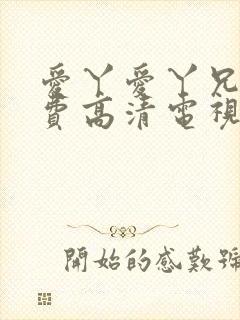 愛丫愛丫兄
費高清電視
開始的感歎號